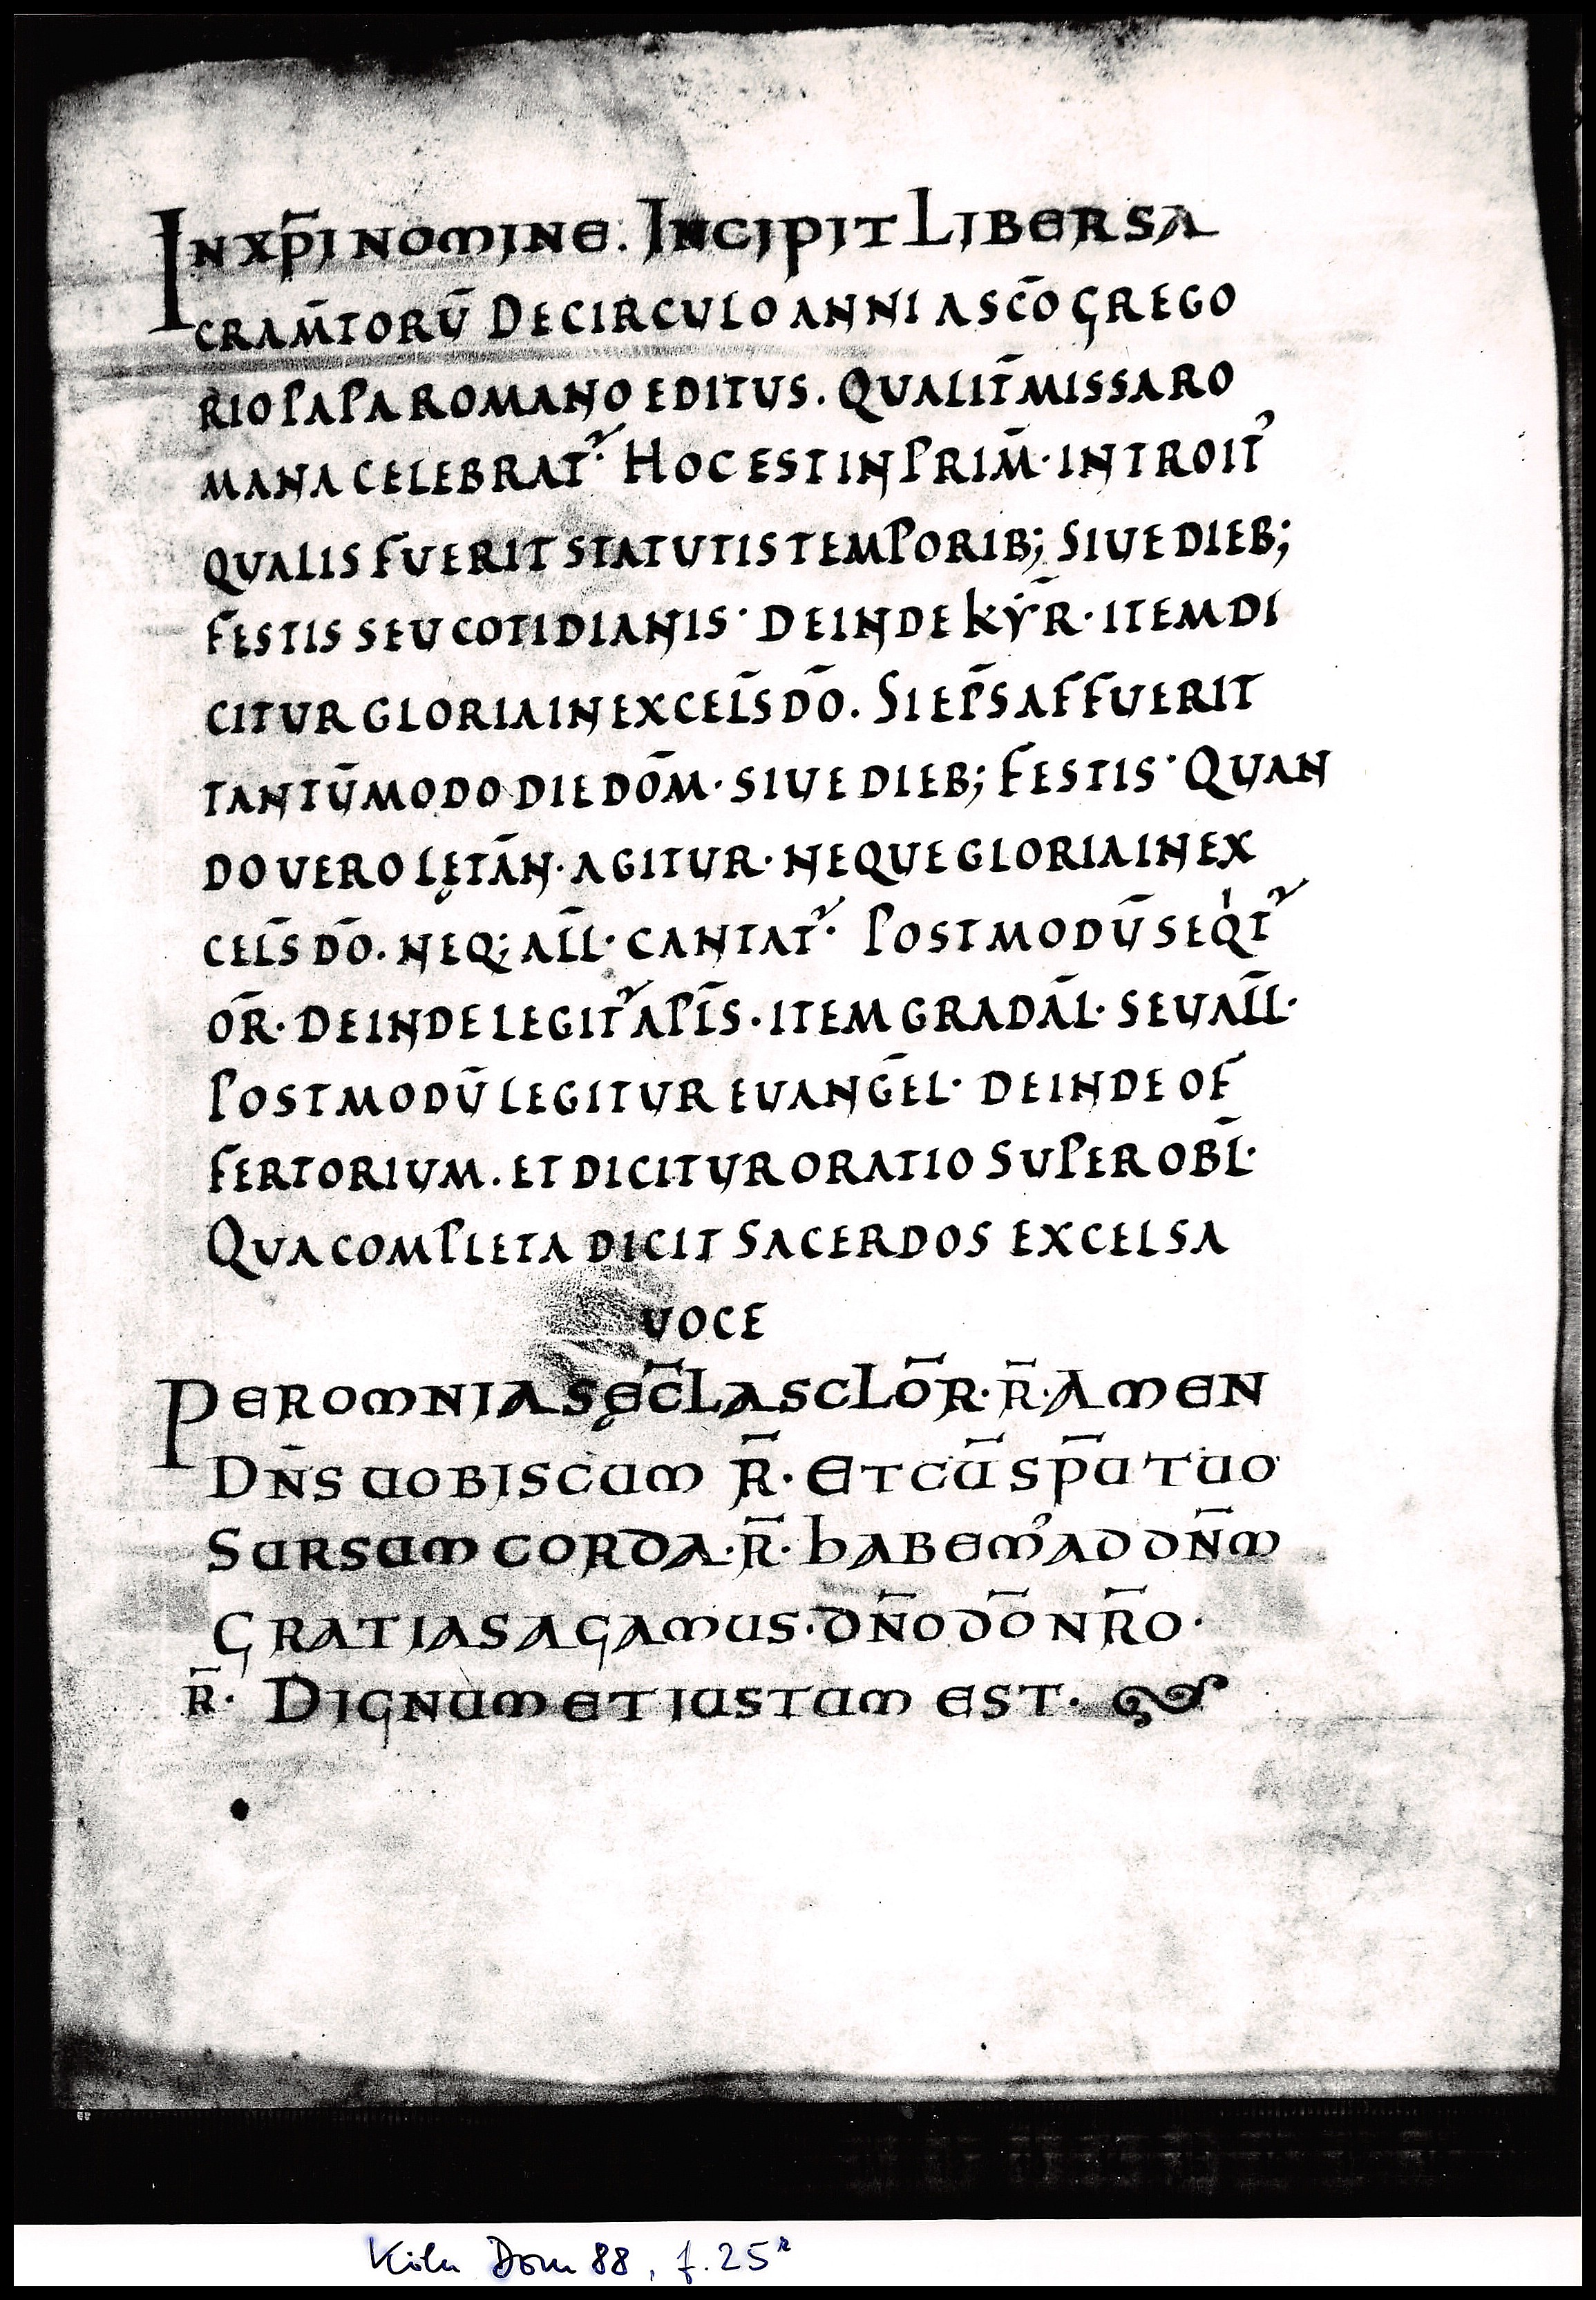 IN XP̅I NOMINE. INCIPIT LIBER SA
CRAM̅TORU̅ DE CIRCULO ANNI A SC̅O GREGO
RIO PAPA ROMANO EDITUS. QUALIT̅ MISSA RO
MANA CELEBRAT᷑· HOC EST IN PRIM̅· INTROIT᾽
QUALIS FUERIT STATUTIS TEMPORIB; SIUE DIEB;
FESTIS SEU COTIDIANIS· DEINDE KYR̅· ITEM DI
CITUR GLORIA IN EXCEL̅S D̅O. SI EP̅S AFFUERIT
TANTU̅MODO DIE DO̅M· SIUE DIEB; FESTIS· QUAN
DO UERO LĘTA̅N· AGITUR· NEQUE GLORIA IN EX
CEL̅S D̅O. NEQ; AL̅L· CANTAT᷑· POSTMODU̅ SEQͥT᷑
O̅R· DEINDE LEGIT᷑ AP̅LS· ITEM GRADA̅L· SEU AL̅L·
POSTMODU̅ LEGITUR EUANG̅EL· DEINDE OF
FERTORIUM. ET DICITUR ORATIO SUPER OBL̅·
QUA COMPLETA DICIT SACERDOS EXCELSA
UOCE
PER OMNIA SĘC̅LA SCLO̅R· R̅· AMEN
DN̅S UOBISCUM R̅· ET CU̅ SP̅U TUO
SURSUM CORDA· R̅· HABEM᾽ AD DN̅M
GRATIAS AGAMUS· DN̅O D̅O NR̅O·
R̅· DIGNUM ET IUSTUM EST·
Köln Dom 88, f. 25ʳ